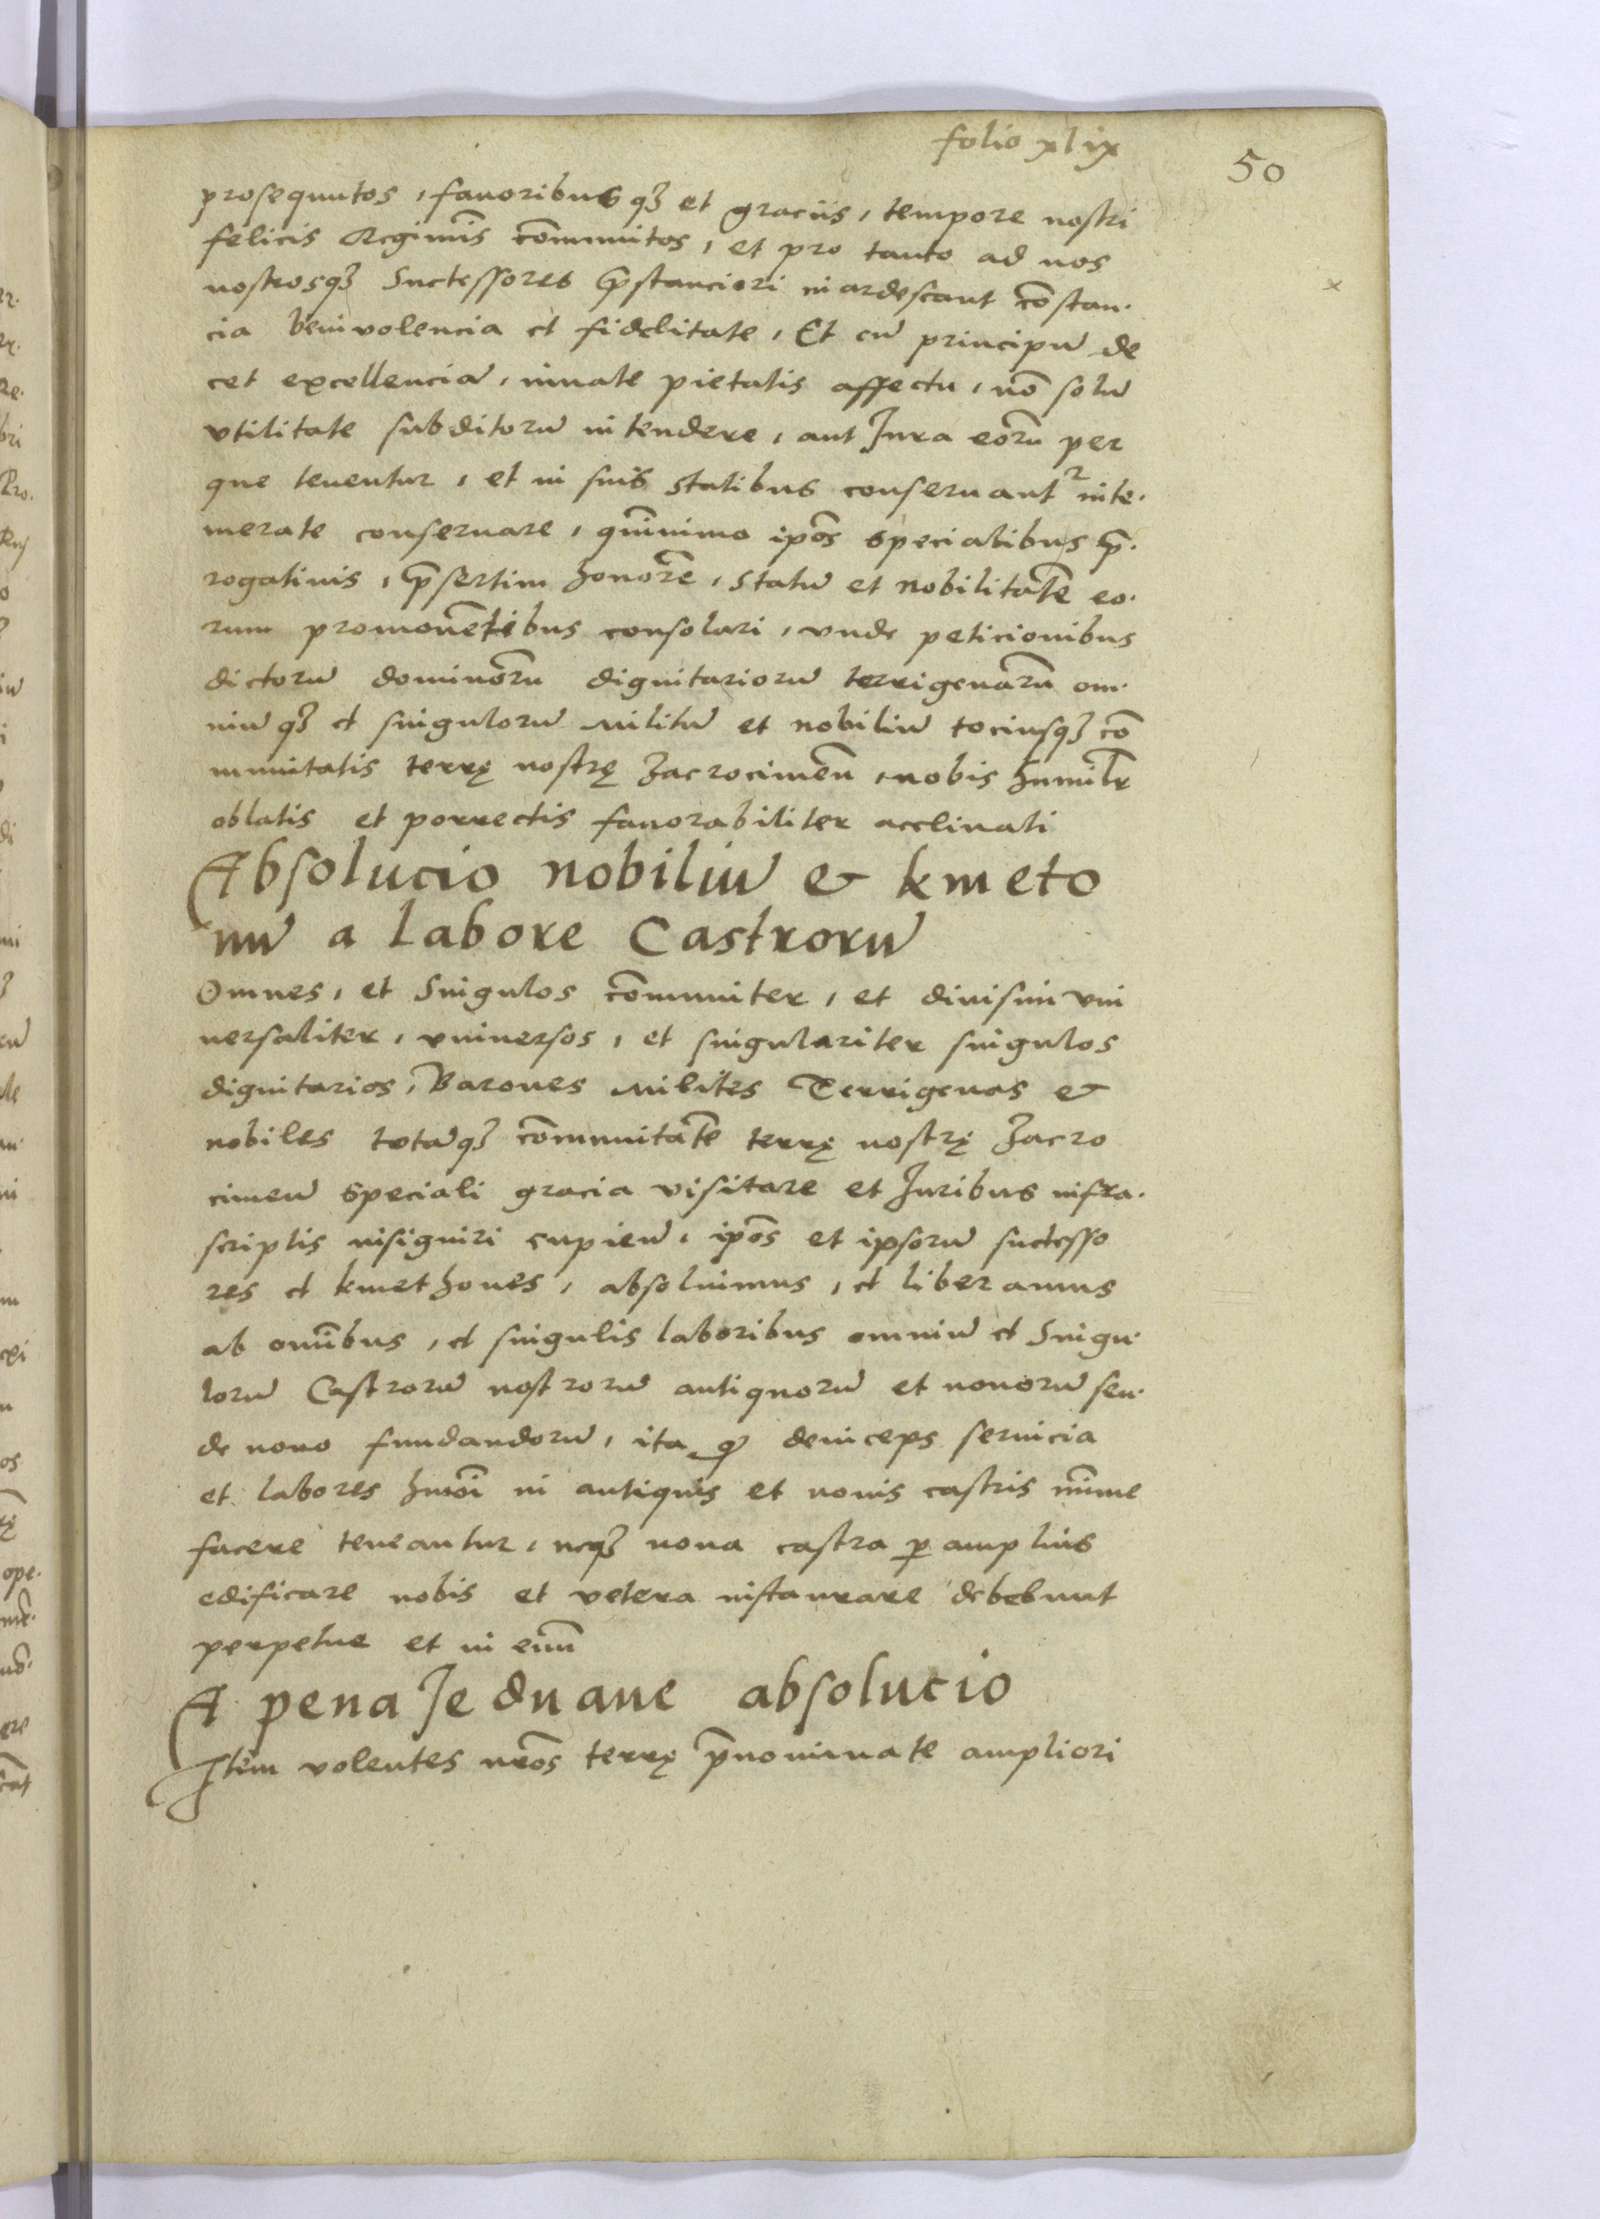 folio xlix
50
prosequutos, fauoribusqʒ et graciis, tempore nostri
felicis Regimīs cōmunitos, et pro tanto ad nos
nostrosqʒ Successores p̄stanciori inardescant cōstan·
cia beniuolencia et fidelitate, Et cū principū de
cet excellenciā, innate pietatis affectu, nō solū
vtilitate subditorū intendere, aut Jura eorū per
que tenentur, et in suis statibus conseruantʳ inte·
merate conseruare, quīnimo ipōs specialibus p̄·
rogatiuis, p̄sertim honorē, statū et nobilitatē eo·
rum promouētibus consolari, vnde peticionibus
dictorū dominorū dignitariorū terrigenarū om·
niūqʒ et singulorū militū et nobiliū tociusqʒ cō
munitatis terrę nostrę Zacrocimēn, nobis humilr̄
oblatis et porrectis fauorabiliter acclinati
Absolucio nobiliū & kmeto
nū a labore Castrorū
Omnes, et Singulos cōmuniter, et diuisim vni
uersaliter, vniuersos, et singulariter singulos
dignitarios, Barones milites Terrigenas &
nobiles totāqʒ cōmunitatē terrę nostrę Zacro
cimen̄ speciali gracia visitare et Juribus infra·
scriptis insigniri cupien̄, ipōs et ipsorū successo
res et kmethones, absoluimus, et liberamus
ab omībus, et singulis laboribus omniū et Singu·
lorū Castrorū nostrorū antiquorū et nouorū seu·
de nouo fundandorū, ita ꝙ deinceps seruicia
et labores hmōi in antiquis et nouis castris mīme
facere teneantur, neqʒ noua castra ꝑamplius
edificare nobis et vetera instaurare debebunt
perpetue et in euū
A pena Jeduane absolucio
Item volentes nr̄os terrę p̄nominate ampliori